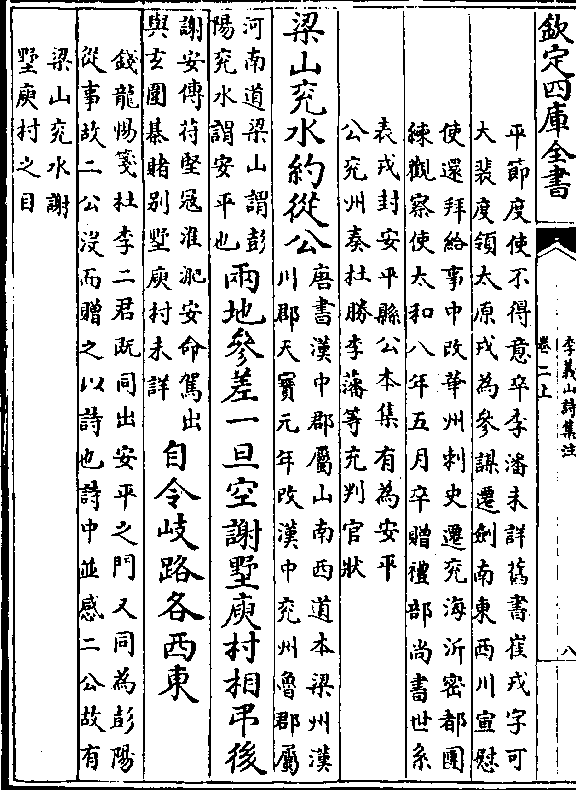 欽定四庫全書
李義山詩集注
卷二上
八
平節度使不得意卒李潘未詳舊書崔戎字可
大裴度領太原戎為參謀遷劍南東西川宣慰
使還拜給事中改華州刺史遷兖海沂密都團
練觀察使太和八年五月卒贈禮部尚書世系
表戎封安平縣公本集有為安平
公兖州奏杜勝李藩等充判官狀
梁山兖水約從公
唐書漢中郡屬山南西道本梁州漢
川郡天寶元年改漢中兖州魯郡屬
河南道梁山謂彭
陽兖水謂安平也
兩地參差一旦空謝墅庾村相弔後
謝安傳苻堅冦淮淝安命駕出
與玄圍棊賭别墅庾村未詳
自令岐路各西東
錢龍惕箋杜李二君既同出安平之門又同為彭陽
從事故二公沒而贈之以詩也詩中並感二公故有
梁山兖水謝
墅庾村之目